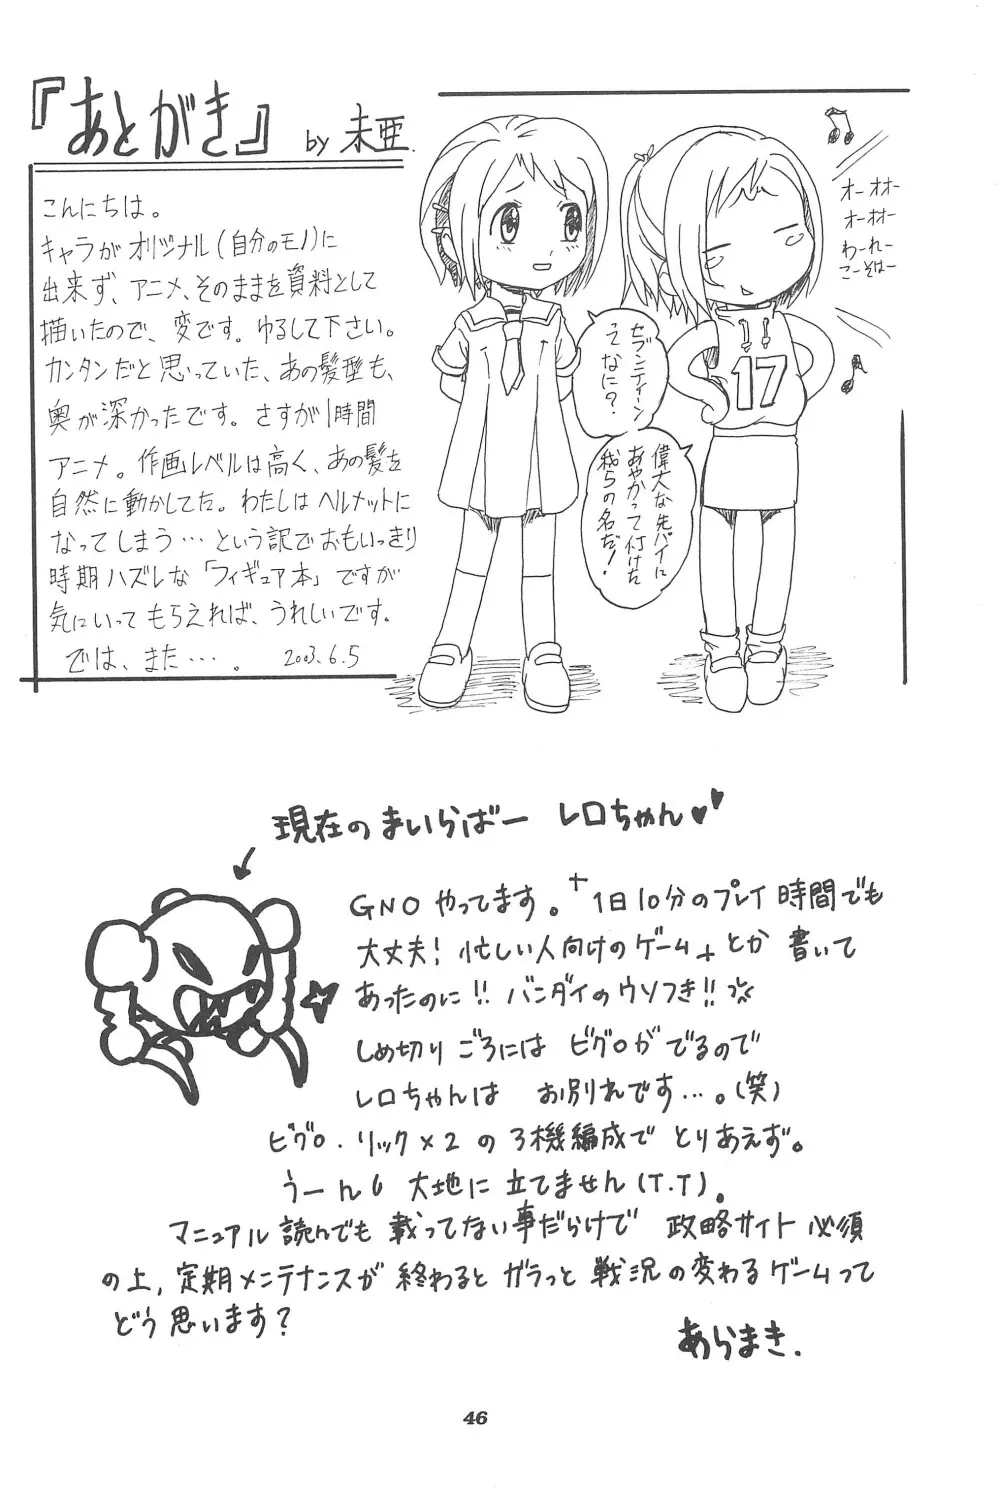 『あとがき』 by 未亜.
こんにちは。
キャラがオリジナル(自分のモノ)に
出来ず、アニメ、そのままを資料として
描いたので、変です。ゆるして下さい。
カンタンだと思っていた、あの髪型も、
奥が深かったです。さすが1時間
アニメ。作画レベルは高く、あの髪を
自然に動かしてた。わたしはヘルメットに
なってしまう…という訳でおもいっきり
時期ハズレな「フィギュア本」ですが
気にいってもらえれば、うれしいです。
では、また…。 2003.6.5
オーオオー
オーオオー
わーれー
こーそはー
セブンティーン
って なに?
偉大な先パイに
あやかって付けた
我らの名だ!
17
現在のまいらばー レロちゃん♥♥
GNOやってます。"1日10分のプレイ時間でも
大丈夫!忙しい人向けのゲーム"とか書いて
あったのに!!バンダイのウソつき!!
しめ切りごろには ビグロがでるので
レロちゃんは お別れです…。(笑)
ビグロ・リック×2の3機編成で とりあえず。
うーん 大地に立てません(T.T)。
マニュアル読んでも載ってない事だらけで 政略サイト必須
の上、定期メンテナンスが終わるとガラっと戦況の変わるゲームって
どう思います?
あらまき.
46